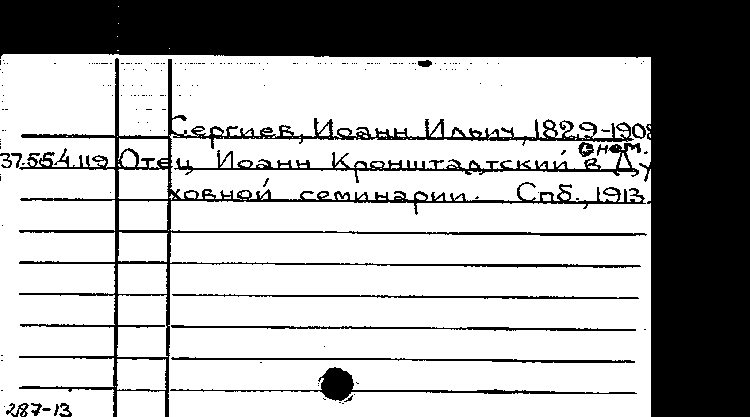 Сергиев, Иоанн Ильич, 1829-1908
о нем.
37.55.4.119 Отец Иоанн Кронштадтский в Ду
ховной семинарии. Спб., 1913.
287-13